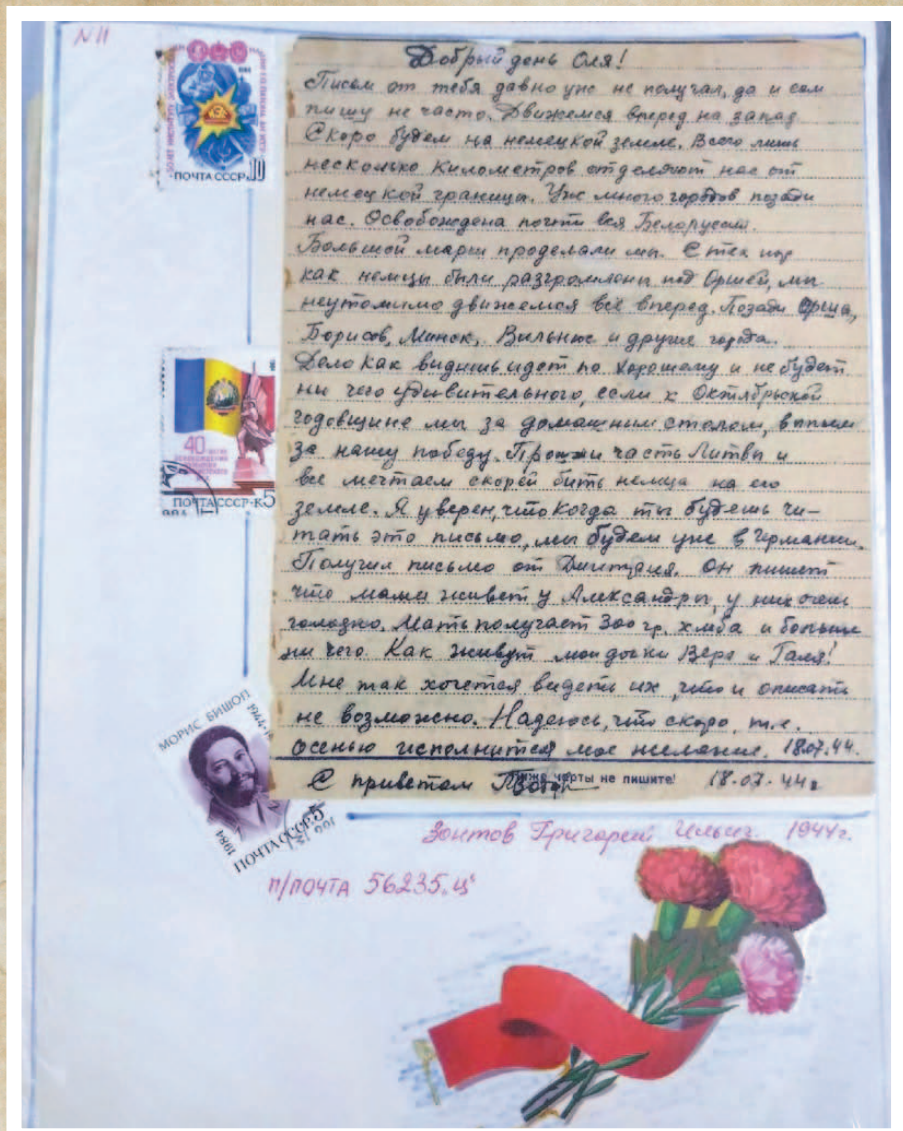 N 11
1984
ПОЧТА СССР 10
Добрый день Оля!
Писем от тебя давно уже не получал, да и сам
пишу не часто. Движемся вперед на запад.
Скоро будем на немецкой земле. Всего лишь
несколько километров отделяют нас от
немецкой граница. Уже много городов позади
нас. Освобождена почти вся Белоруссия.
Большой марш проделали мы. С тех пор
как немцы были разгромлены под Оршей, мы
неутомимо движемся все вперед. Позади Орша,
Борисов, Минск, Вильнюс и другие города.
Дело как видишь идет по хорошему и не будет
ни чего удивительного, если к Октябрьской
годовщине мы за домашним столом, выпьем
за нашу победу. Прошли часть Литвы и
все мечтаем скорей бить немца на его
земле. Я уверен, что когда ты будешь чи-
тать это письмо, мы будем уже в Германии.
Получил письмо от Дмитрия. Он пишет
что мама живет у Александры, у них очень
голодно. Мать получает 300 гр. хлеба и больше
ни чего. Как живут мои дочки Вера и Галя!
Мне так хочется видеть их, что и описать
не возможно. Надеюсь, что скоро, т.е.
осенью исполнится мое желание. 18.07.44.
Ниже черты не пишите!
С приветом 18.07.44г
40
ПОЧТА СССР·К5
МОРИС БИШОП
1944
1984
ПОЧТА СССР 5
Зонтов Григорий Ильич. 1944г.
П/ПОЧТА 56235 "Ц"